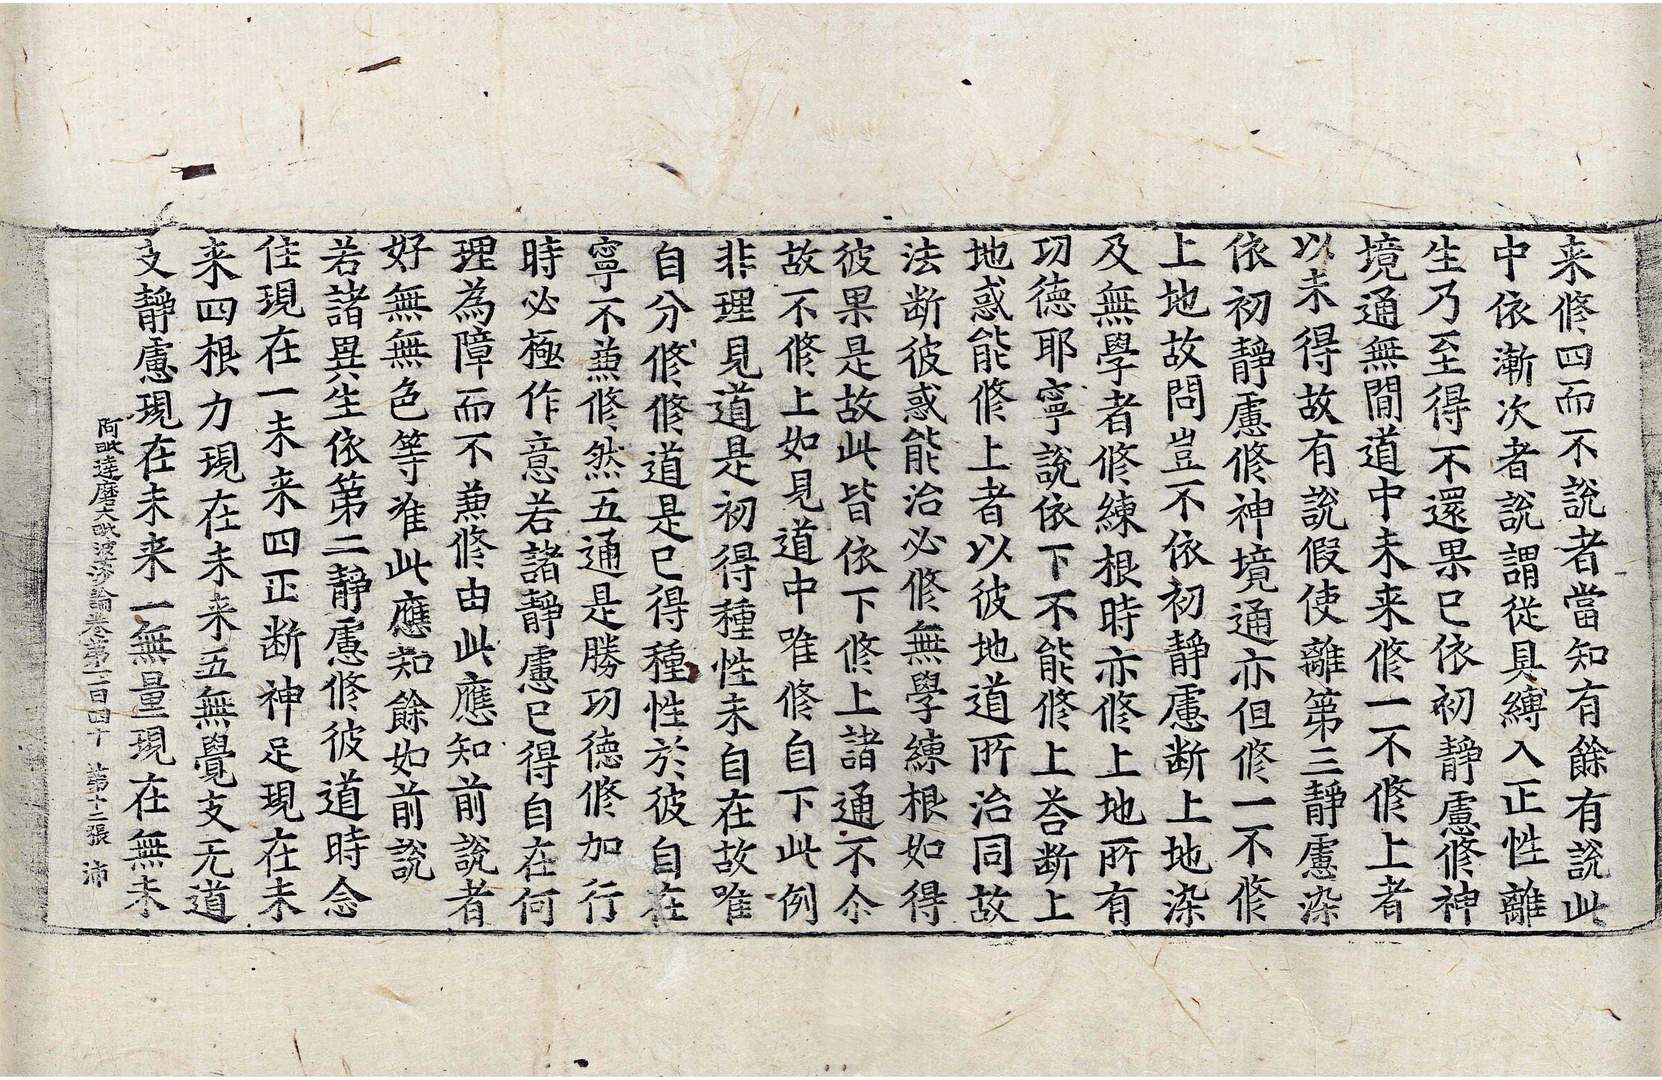 来修四而不說者當知有餘有說此
中依漸次者說謂從具縛入正性離
生乃至得不還果已依初靜慮修神
境通無閒道中未来修一不修上者
以未得故有說假使離第三靜慮染
依初靜慮修神境通亦但修一不修
上地故問豈不依初靜慮断上地染
及無學者修練根時亦修上地所有
功德耶寧說依下不能修上荅断上
地惑能修上者以彼地道所治同故
法断彼惑能治必修無學練根如得
彼果是故此皆依下修上諸通不尒
故不修上如見道中唯修自下此例
非理見道是初得種性未自在故唯
自分修修道是已得種性於彼自在
寧不兼修然五通是勝功德修加行
時必極作意若諸靜慮已得自在何
理為障而不兼修由此應知前說者
好無無色等准此應知餘如前說
若諸異生依第二靜慮修彼道時念
住現在一未来四正断神足現在未
来四根力現在未来五無覺支无道
支靜慮現在未来一無量現在無未
阿毗達磨大毗婆沙論卷第一百四十 第十二張 沛